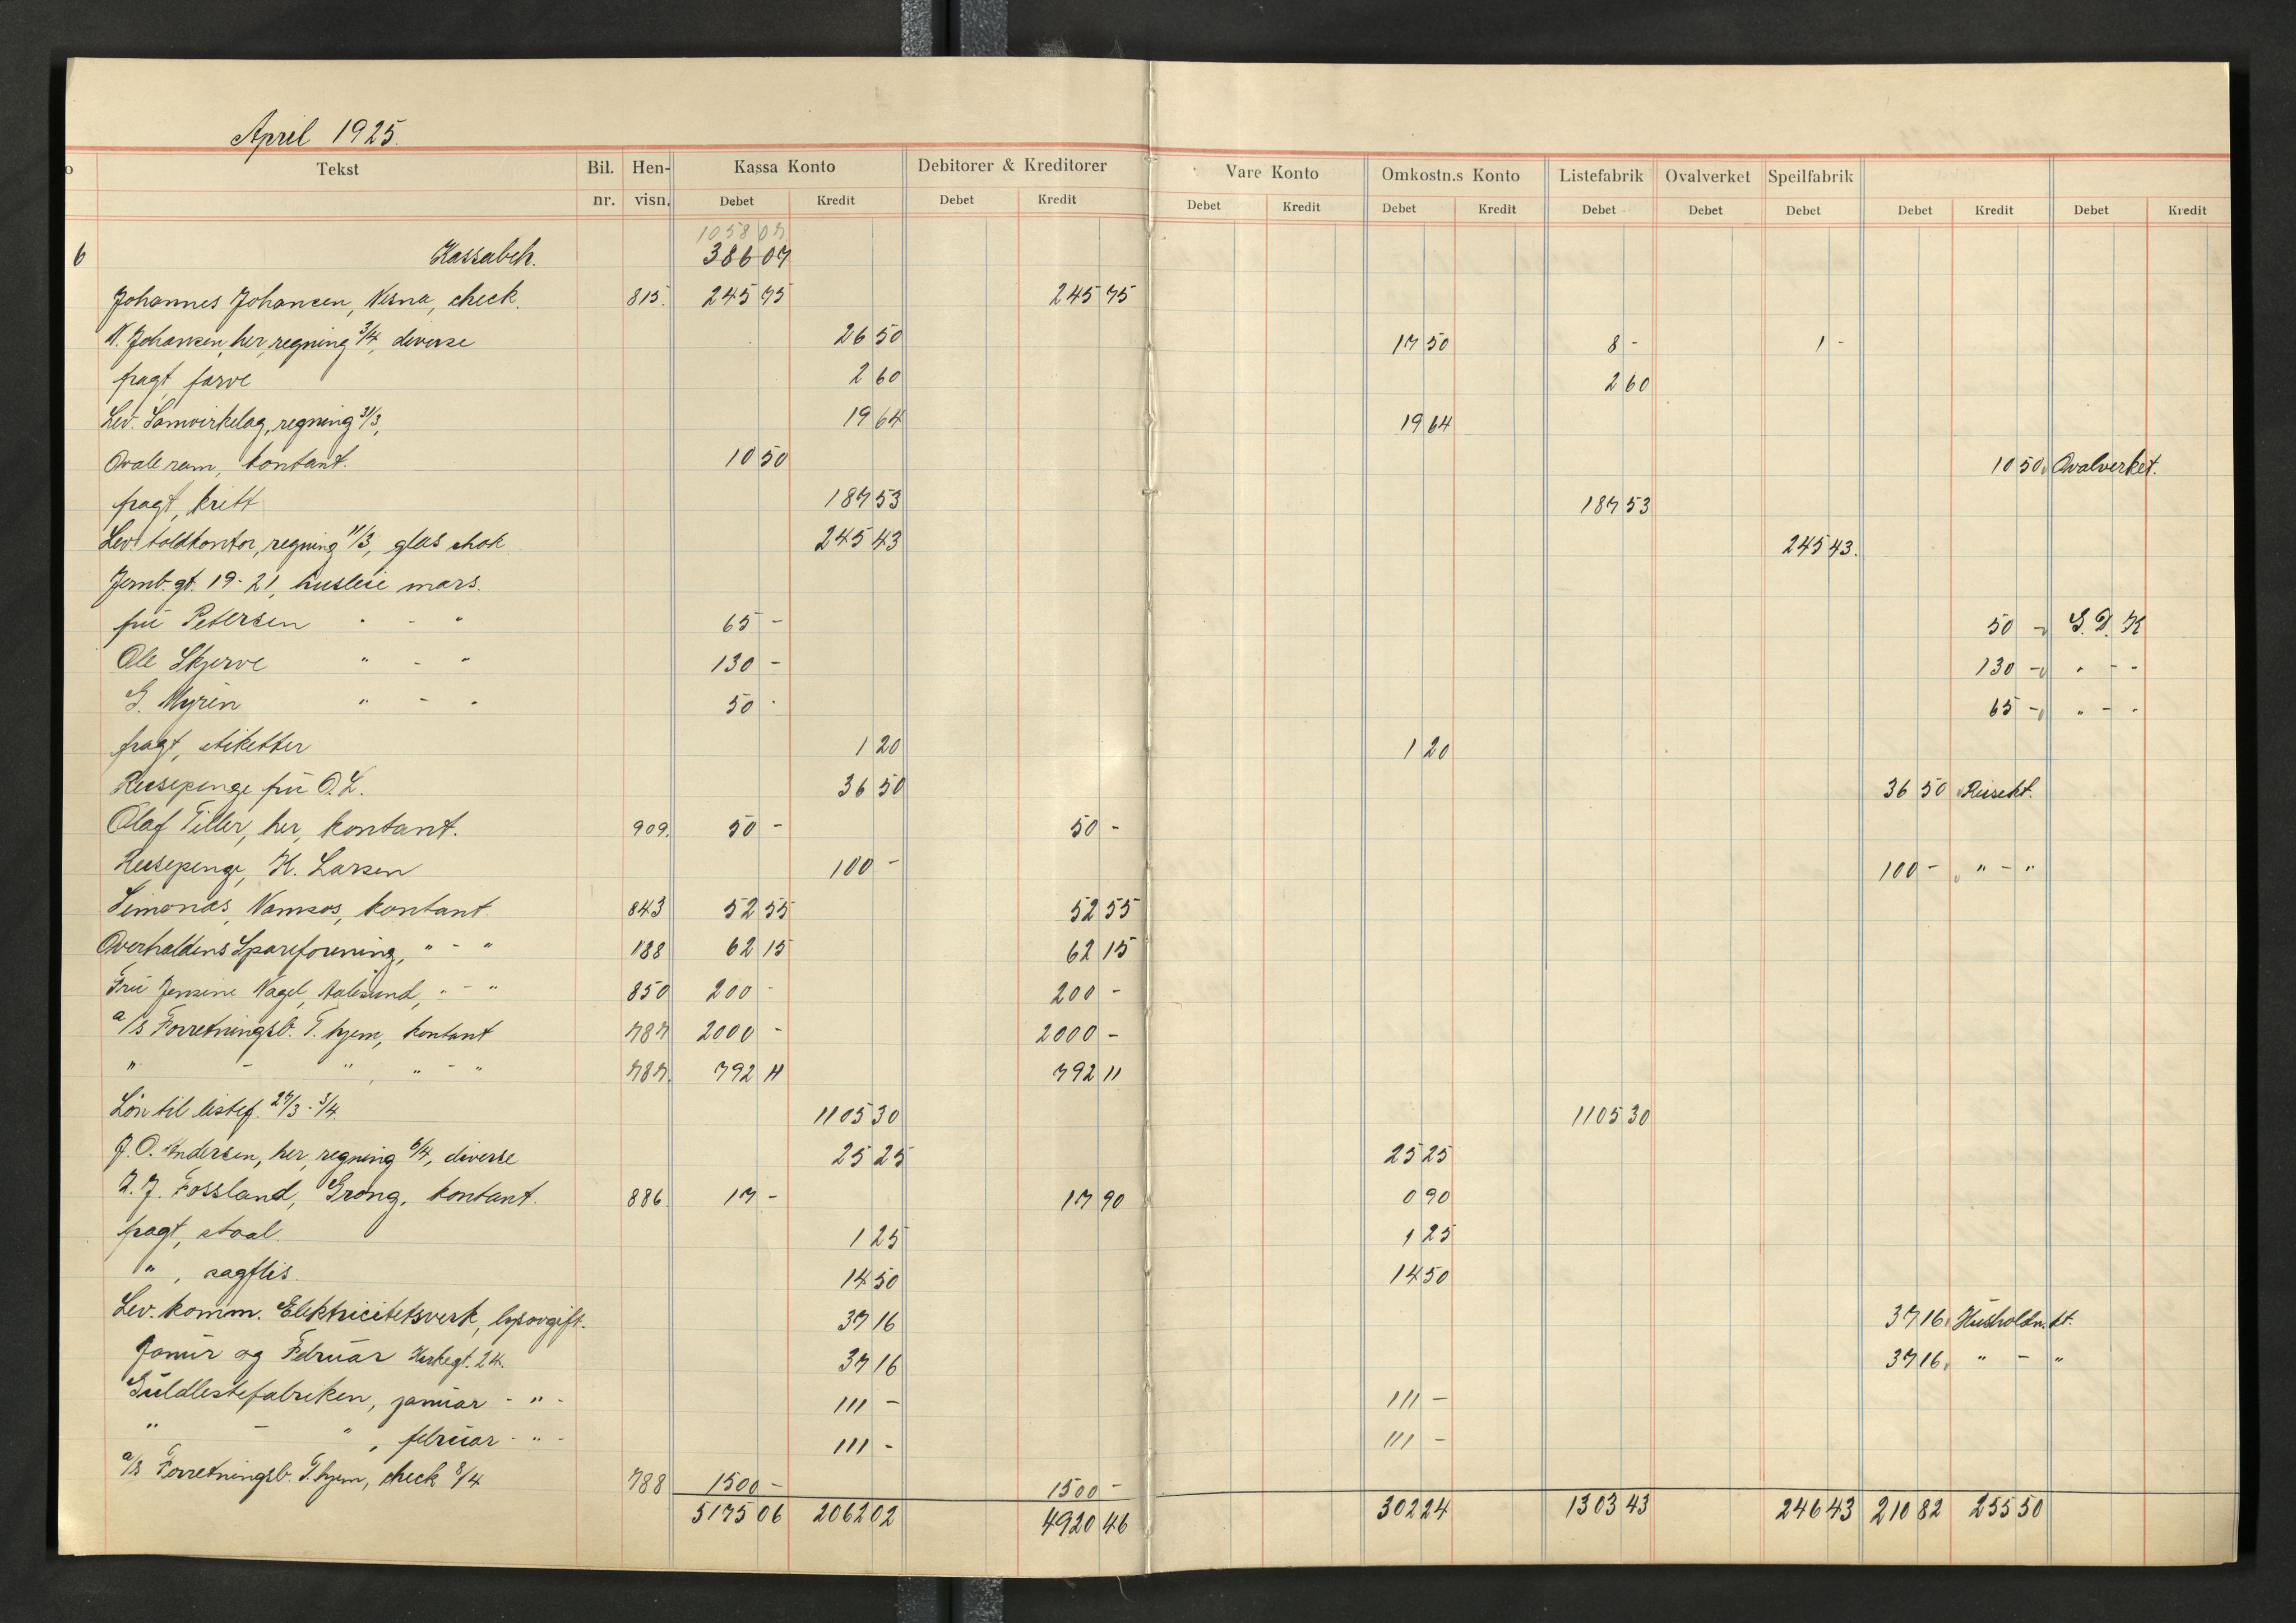 April 1925.
o Tekst Bil. Hen- Kassa Konto Debitorer & Kreditorer Vare Konto Omkostn.s Konto Listefabrik Ovalverket Speilfabrik
nr. visn. Debet Kredit Debet Kredit Debet Kredit Debet Kredit Debet Debet Debet Debet Kredit Debet Kredit
1058 07
6 Kassabeh. 386 07
Johannes Johansen, Nesna, check. 815. 245 75 245 75
N. Johansen, her, regning 3/4, diverse 26 50 17 50 8 - 1 -
fragt, farve 2 60 2 60
Lev. Samvirkelag, regning 31/3, 19 64 19 64
Ovale ram, kontant. 10 50 10 50 Ovalverket.
fragt, kritt 187 53 187 53
Lev. toldkontor, regning 11/3, glas 245 43 245 43.
Jernb. gt. 19-21, husleie mars.
frú Petersen " - " 65 - 50 - G. D. K
Ole Skjerve " - " 130 - 130 - " - "
G. Myrén " - " 50 - 65 - " - "
fragt, etiketter 1 20 1 20
Reisepenge frú O. L. 36 50 36 50 Reisekt.
Olaf Tiller, her, kontant. 909. 50 - 50 -
Reisepenge, K. Larsen 100 - 100 - " - "
Simonas, Namsos, kontant 843 52 55 52 55
Overhaldens Spareforening, " - " 188 62 15 62 15
Frú Jensine Nagel, Aalesund, " - " 850 200 - 200 -
a/s Forretningsb. T.hjem, kontant 787 2000 - 2000 -
" - " , " - " 787. 792 11 792 11
Løn til listef. 27/3 - 3/4. 1105 30 1105 30
J. O. Andersen, her, regning 6/4, diverse 25 25 25 25
J. Fossland, Grong, kontant. 886. 17 - 17 90 0 90
fragt, staal. 1 25 1 25
" , sagflis. 14 50 14 50
Lev. komm. Elektricitetsverk, lysavgift. 37 16 37 16 Húsholdn.kt.
Janúr og Februar Kirkegt. 24. 37 16 37 16 " - "
Gúldlistefabriken, januar - " - 111 - 111 -
" - " , februar - " - 111 - 111 -
a/s Forretningsb. T.hjem, check 8/4 788 1500 - 1500 -
5175 06 2062 02 4920 46 302 24 1303 43 246 43 210 82 255 50